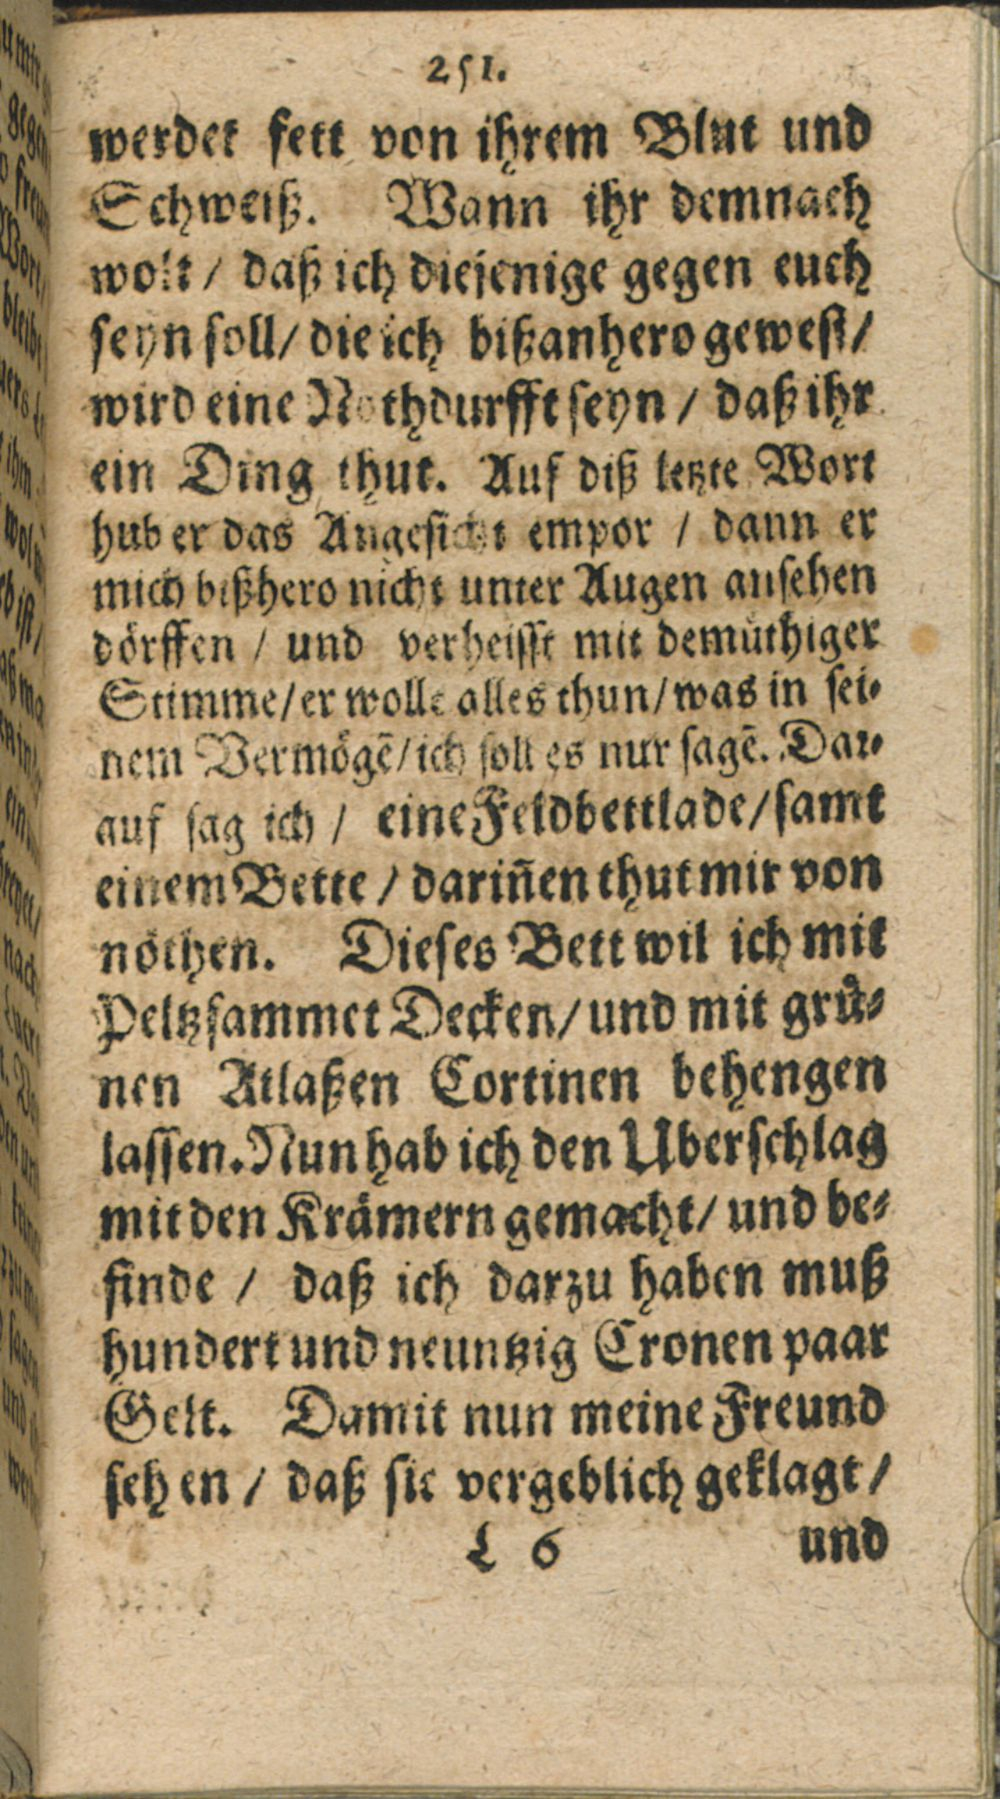 251.
werdet fett von ihrem Blut und
Schweiß. Wann ihr demnach
wolt / daß ich diejenige gegen euch
seyn soll / die ich bißanhero gewest /
wird eine Nothdurfft seyn / daß ihr
ein Ding thut. Auf diß letzte Wort
hub er das Angesicht empor / dann er
mich bißhero nicht unter Augen ansehen
dörffen / und verheisst mit demüthiger
Stimme / er wolle alles thun / was in sei-
nem Vermögē / ich soll es nur sagē. Dar-
auf sag ich / eine Feldbettlade / samt
einem Bette / dariñen thut mir von
nöthen. Dieses Bett wil ich mit
Peltzsammet Decken / und mit grü-
nen Atlaßen Cortinen behengen
lassen. Nun hab ich den Uberschlag
mit den Krämern gemacht / und be-
finde / daß ich darzu haben muß
hundert und neuntzig Cronen paar
Gelt. Damit nun meine Freund
sehen / daß sie vergeblich geklagt /
L 6 und